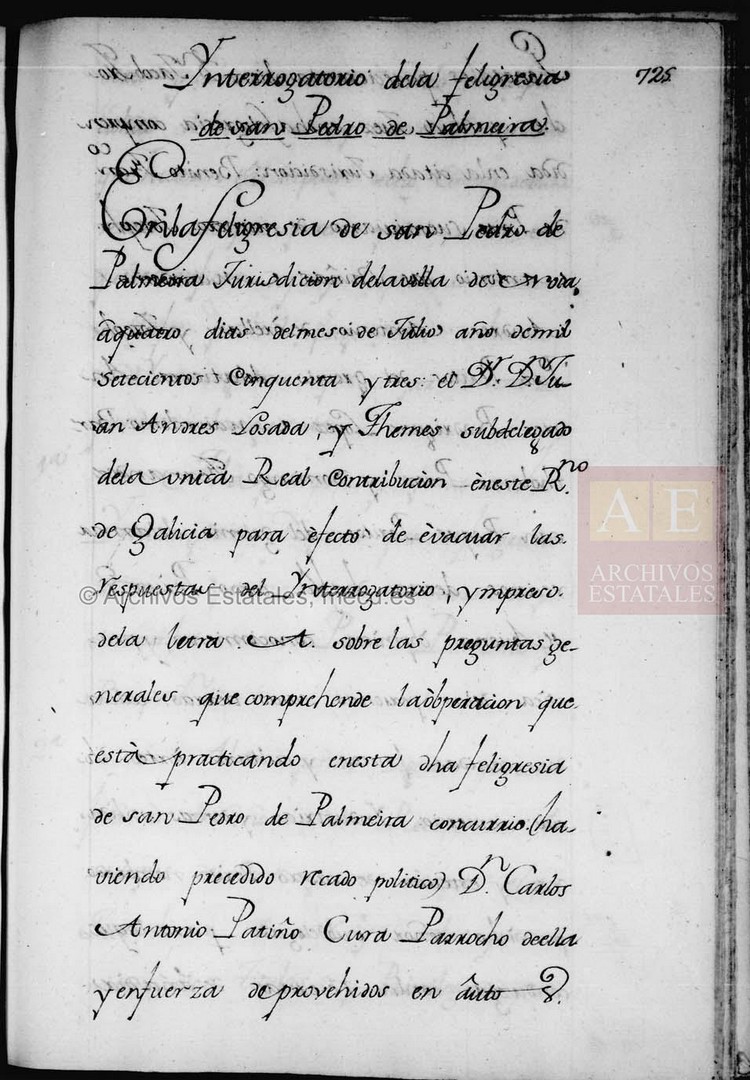 Ynterrogatorio dela feligresia
725
de san Pedro de Palmeira.
En la feligresia de san Pedro de
Palmeira Jurisdicion dela villa de
âquatro dias delmes de Julio año demil
setecientos Cinquenta y tres: el D.r D.n Ju
an Andres Losada, y Themes subdelegado
dela vnicâ Real Contribucion èneste R.no
de Galicia para èfecto de èvacuar las.
respuestas del Ynterrogatorio, ympreso.
dela letra. A. sobre las preguntas ge-
nerales que comprehende laòbperacion que.
està practicando enesta dha feligresia
de san Pedro de Palmeira concurrio. (ha-
viendo precedido recado politico) D.n Carlos
Antonio Patiño Cura Parrocho deella
y enfuerza de provehidos en âuto
A E
ARCHIVOS
ESTATALES
© Archivos Estatales, mecd.es